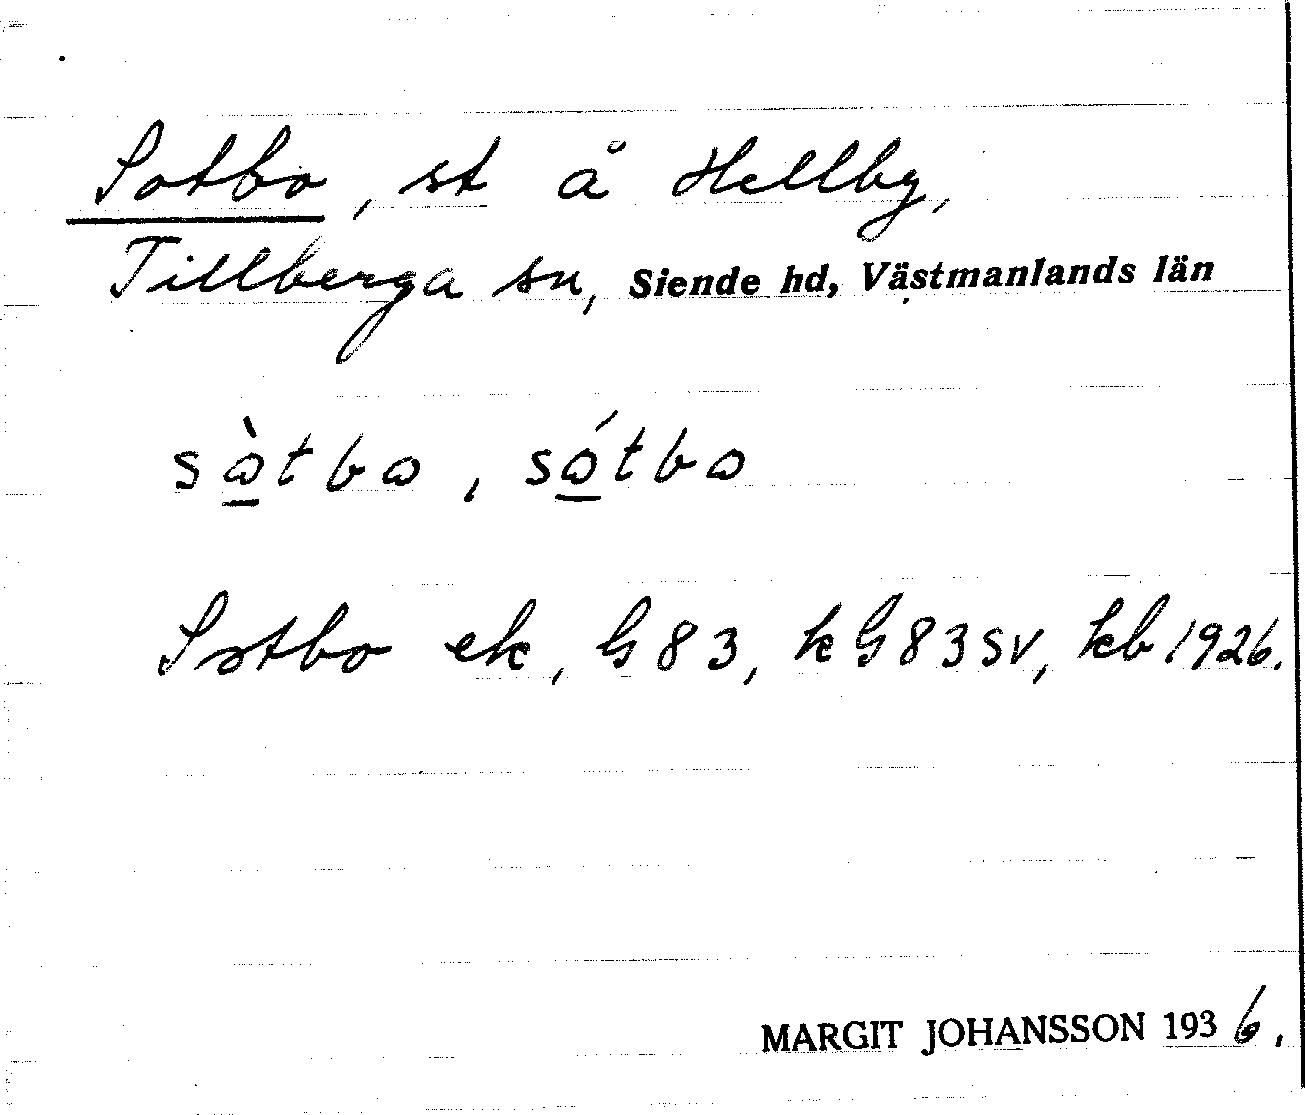 Sotbo, st å Hellby,
Tillberga sn, Siende hd, Västmanlands län
sò̲tbo, só̲tbo
Sotbo ek, G 83, k G 83 SV, kb 1926.
MARGIT JOHANSSON 1936.